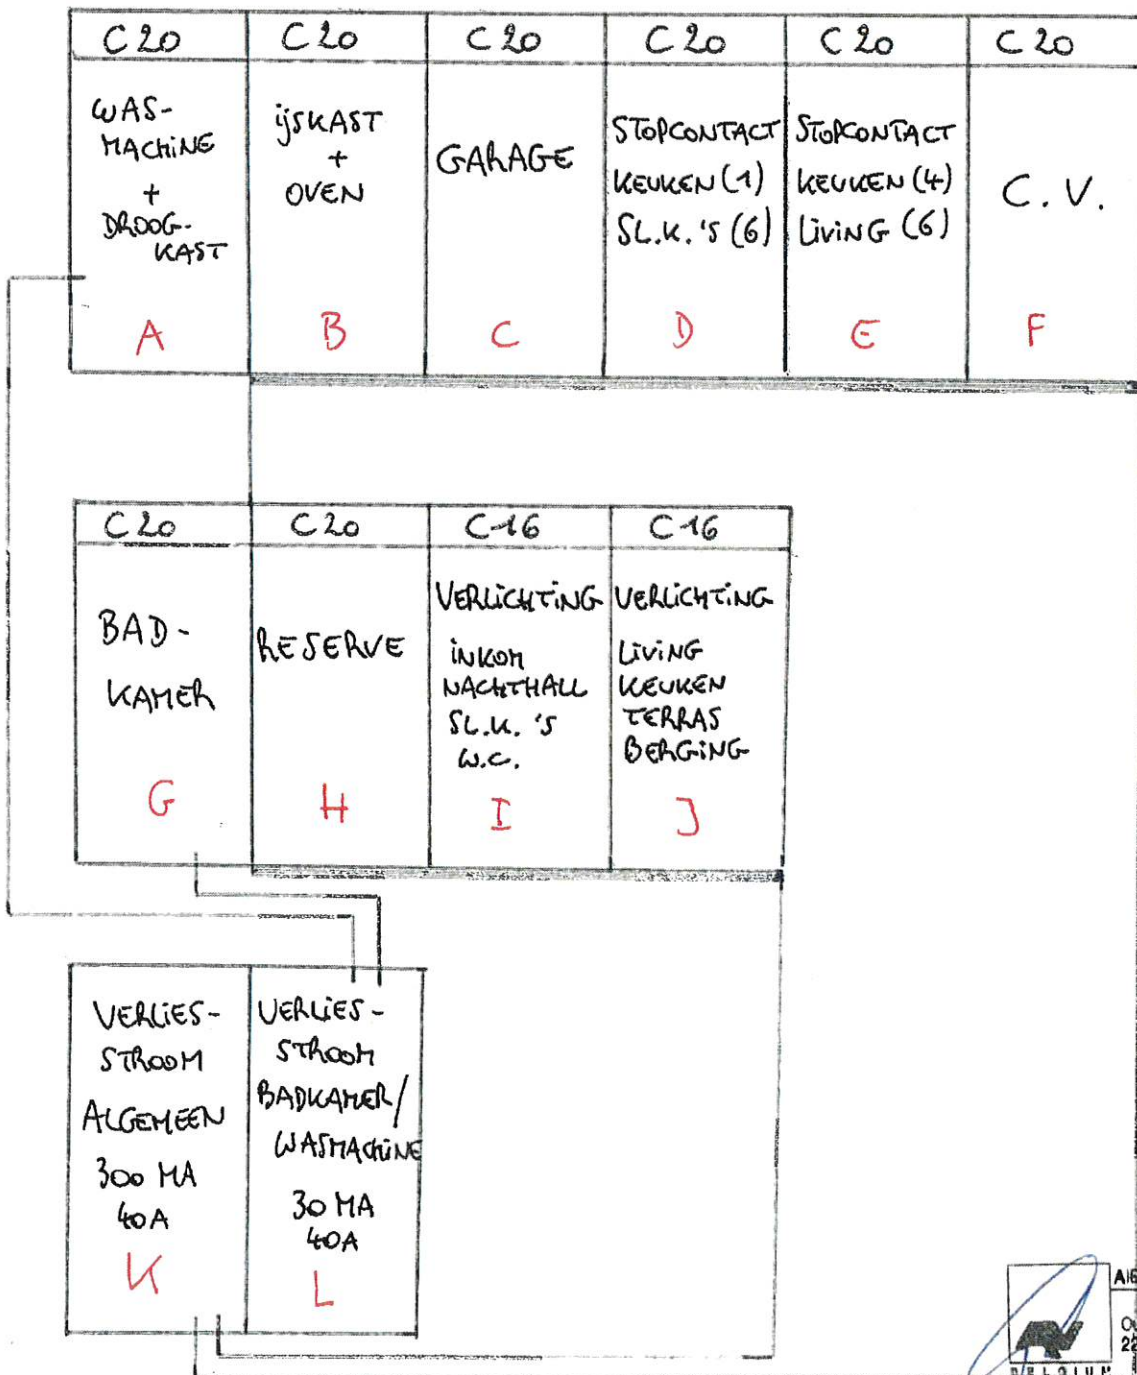 C20 C20 C20 C20 C20 C20
WAS-
MACHINE
+
DROOG-
KAST
A
ijSKAST
+
OVEN
B
GARAGE
C
STOPCONTACT
KEUKEN (1)
SL.K.'S (6)
D
STOPCONTACT
KEUKEN (4)
LIVING (6)
E
C.V.
F
C20 C20 C16 C16
BAD-
KAMER
G
RESERVE
H
VERLICHTING
INKOM
NACHTHALL
SL.K.'S
W.C.
I
VERLICHTING
LIVING
KEUKEN
TERRAS
BERGING
J
VERLIES-
STROOM
ALGEMEEN
300 MA
40A
K
VERLIES-
STROOM
BADKAMER/
WASMACHINE
30 MA
40A
L
BELGIUM